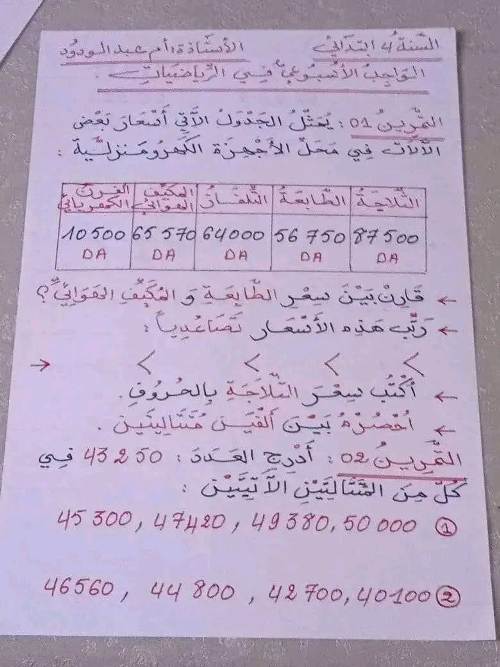 السنة 4 ابتدائي الأستاذة: أم عبد الودود
الواجب الأسبوعي في الرياضيات.
التمرين 01: يمثل الجدول الآتي أسعار بعض
الآلات في محل الأجهزة الكهرومنزلية:
الثلاجة الطابعة التلفاز المكيف الهوائي الفرن الكهربائي
87500 DA 56750 DA 64000 DA 65570 DA 10500 DA
← قارن بين سعر الطابعة و المكيف الهوائي؟
← رتب هذه الأسعار تصاعديا:
< < < <
← أكتب سعر الثلاجة بالحروف.
← أحصره بين ألفين متتاليين.
التمرين 02: أدرج العدد: 43250 في
كل من المتتاليتين الآتيتين:
① 45300, 47420, 49380, 50000
② 46560, 44800, 42700, 40100